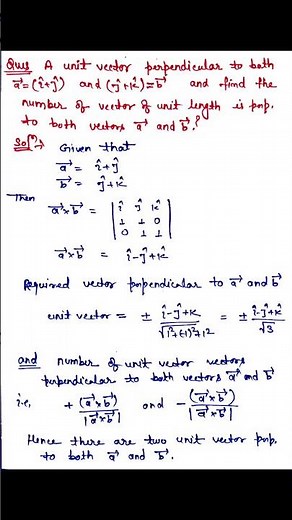 Ques A unit vector perpendicular to both
a⃗=(î+ĵ) and (ĵ+k̂)=b⃗ and find the
number of vector of unit length is prp.
to both vectors a⃗ and b⃗.?
Solⁿ:→ Given that
a⃗ = î+ĵ
b⃗ = ĵ+k̂
Then
a⃗×b⃗ = | î ĵ k̂ |
| 1 1 0 |
| 0 1 1 |
a⃗×b⃗ = î-ĵ+k̂
Required vector perpendicular to a⃗ and b⃗
unit vector = ± (î-ĵ+k̂)/√(1²+(-1)²+1²) = ± (î-ĵ+k̂)/√3
and number of unit vector vectors
perpendicular to both vectors a⃗ and b⃗
i.e, + (a⃗×b⃗)/|a⃗×b⃗| and - (a⃗×b⃗)/|a⃗×b⃗|
Hence there are two unit vector prp.
to both a⃗ and b⃗.